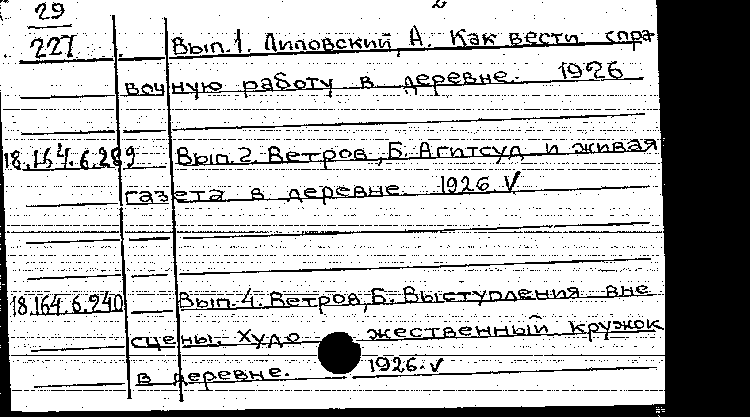 29
227 Вып.1. Липовский, А. Как вести спра-
вочную работу в деревне. 1926
18.164.6.289 Вып.2. Ветров, Б. Агитсуд и живая
газета в деревне. 1926 V
18.164.6.240 Вып.4. Ветров, Б. Выступления вне
сцены. Художественный кружок
в деревне. 1926. V